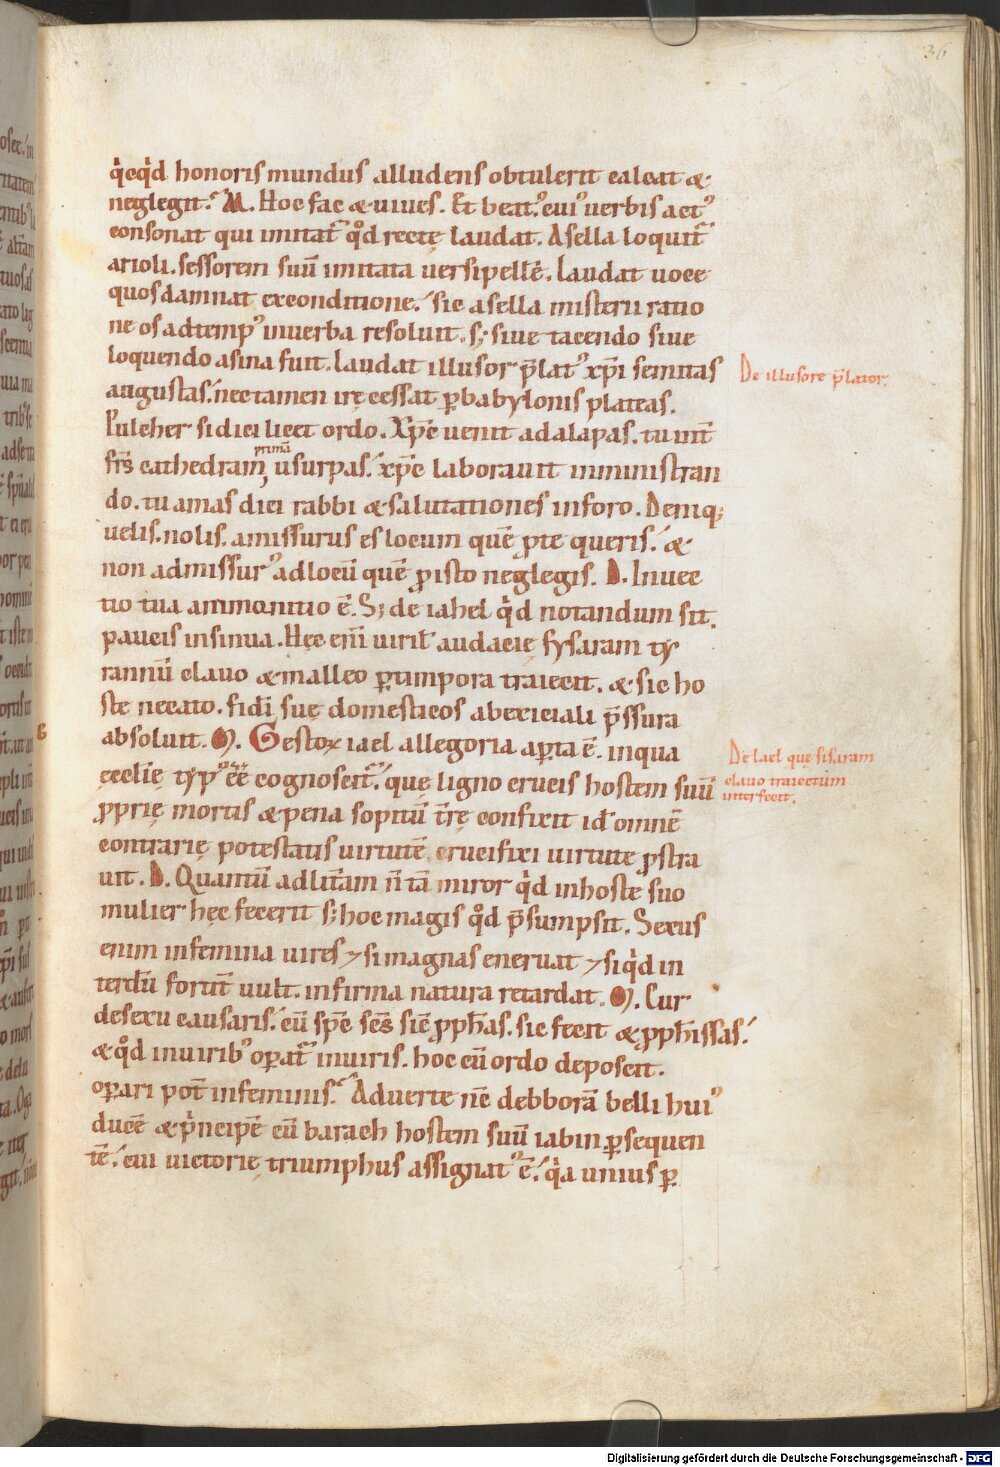 36
q̇cq̇d honoris mundus alludens obtulerit calcat &
neglegit. M. Hoc fac & uiues. Et beatꝰ cuiꝰ uerbis actꝰ
consonat qui imitat͛ qd̊ rectę laudat. Asella loquit͛
arioli. sessorem suū imitata uersipellē. laudat uoce
quos damnat exconditione. sic asella misterii ratio
ne os adtempꝰ inuerba resoluit. s; siue tacendo siue
loquendo asina fuit. laudat illusor p̄latꝰ xp̄i semitas
De illusore p̄lator̄.
augustas. nectamen irę cessat ꝑbabylonis plateas.
Pulcher si dici licet ordo. Xp̄c uenit adalapas. tu int̄
prima
fr̄s cathedram usurpas. xp̄c laborauit inministran
do. tu amas dici rabbi & salutationes inforo. Demq;
uelis. nolis. amissurus es locum quē p̄te queris. &
non admissurꝰ adlocū quē ꝓisto neglegis. D. Inuec
tio tua ammonitio ē. S; de iahel q̇d notandum sit.
paucis insinua. Hęc eni̅ uiril̄ audacię sysaram ty
rannū clauo & malleo ꝑtimpora traiecit. & sic ho
ste necato. fidi̅ suę domesticos abexiciali p̄ssura
absoluit. M. Gestoꝝ iael allegoria aꝑta ē. inqua
De Iael quę sisaram
ęcclię typꝰ ēē cognoscit͛. quę ligno crucis hostem suū
clauo traiectum
interfecit.
ꝓprię mortis & pena sopitū tr̄ę confixit id̄ omnē
contrarię potestatis uirtutē crucifixi uirtute ꝓstra
uit. D. Quantū adlit̄am n̄ tā miror q̇d inhoste suo
mulier hęc fecerit s; hoc magis qd̊ p̄sumpsit. Sexus
enim infemina uires & si magnas eneruat & siq̇d in
terdū fortit̄ uult. infirma natura retardat. M. Cur
desexu causaris. cū sp̄c sc̄s sic̄ ꝓph̄as. sic fecit & ꝓph̄issas.
& qd̊ inuiribꝰ oꝑat͛ inuiris. hoc cū ordo deposcit.
oꝑari pot̄ infeminis. Aduerte nē debborā belli huiꝰ
ducē & ṗncipē cū barach hostem suū iabin ꝑsequen
tē. cui uictorię triumphus assignatꝰ ē. q̇a unius ꝑ
Digitalisierung gefördert durch die Deutsche Forschungsgemeinschaft - DFG